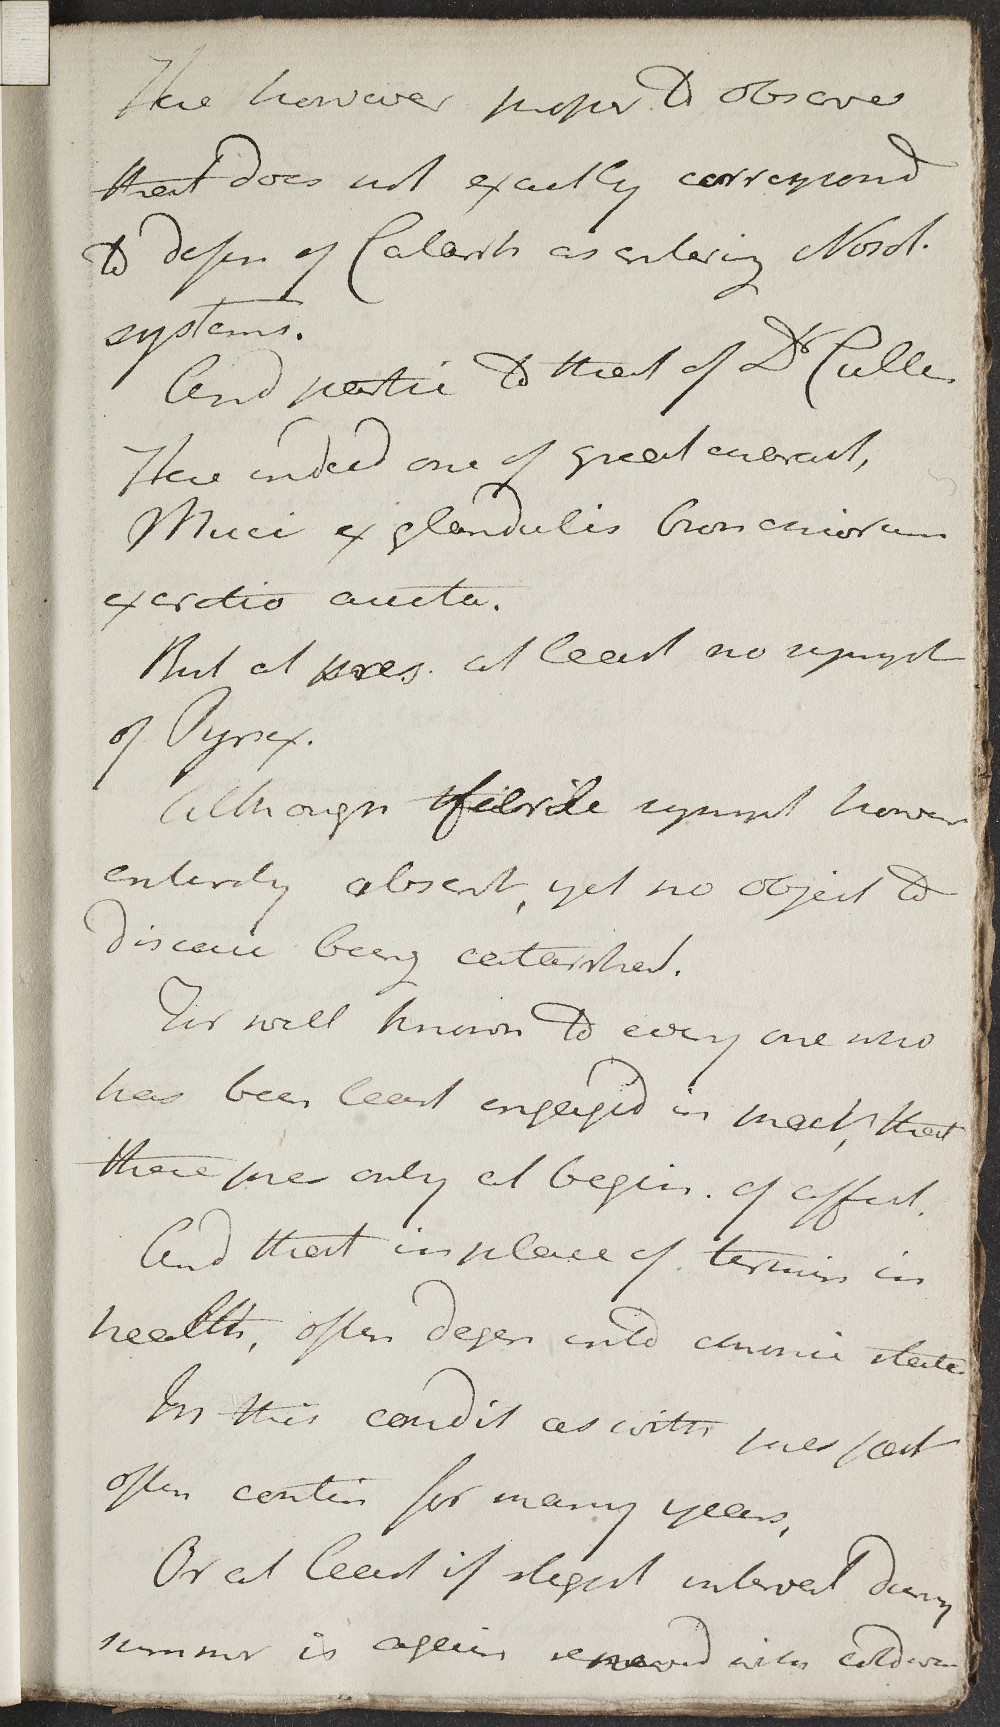 Here however proper to observe
that does not exactly correspond
to defin of Catarrh as entering Nosol.
systems.
And partic to that of Dr Cullen
Here indeed one of great charact,
Muci ex glandulis bronchiorum
excretio aucta.
But at pres. at least no sympt
of Pyrex.
Although febrile sympt however
entirely absent, yet no object to
disease being catarrhal.
Tis well known to every one who
has been least engaged in pract, that
these pres only at begin. of affect.
And that in place of termin in
health, often degen into chronic state
In this condit as with pres pat
often contin for many years,
Or at least if slight interval during
summer is again renewed with cold